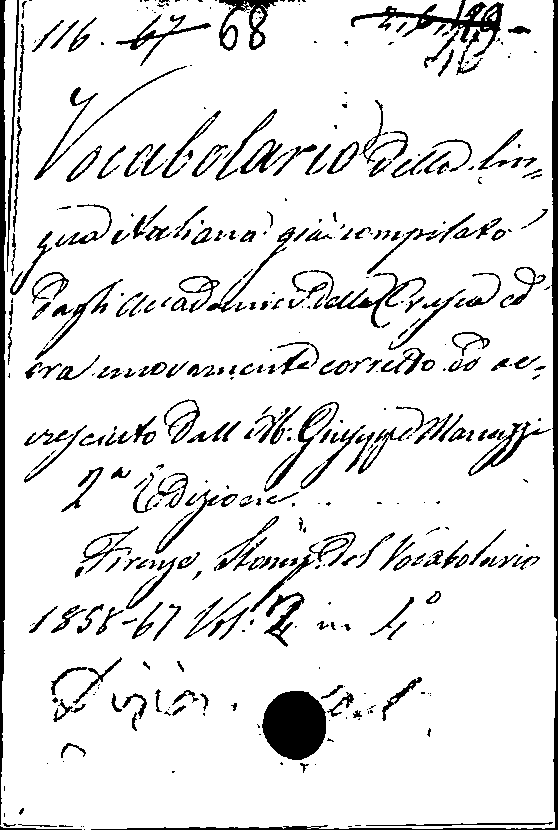 116. 67 68
16
Vocabolario della lin-
gua italiana già compilato
dagli Accademici della Crusca ed
ora nuovamente corretto ed ac-
cresciuto dall'Ab. Giuseppe Manuzzi
2ª Edizione....
Firenze, Stamp. del Vocabolario
1858-67 Vol. 2 in 4°
Dizion.